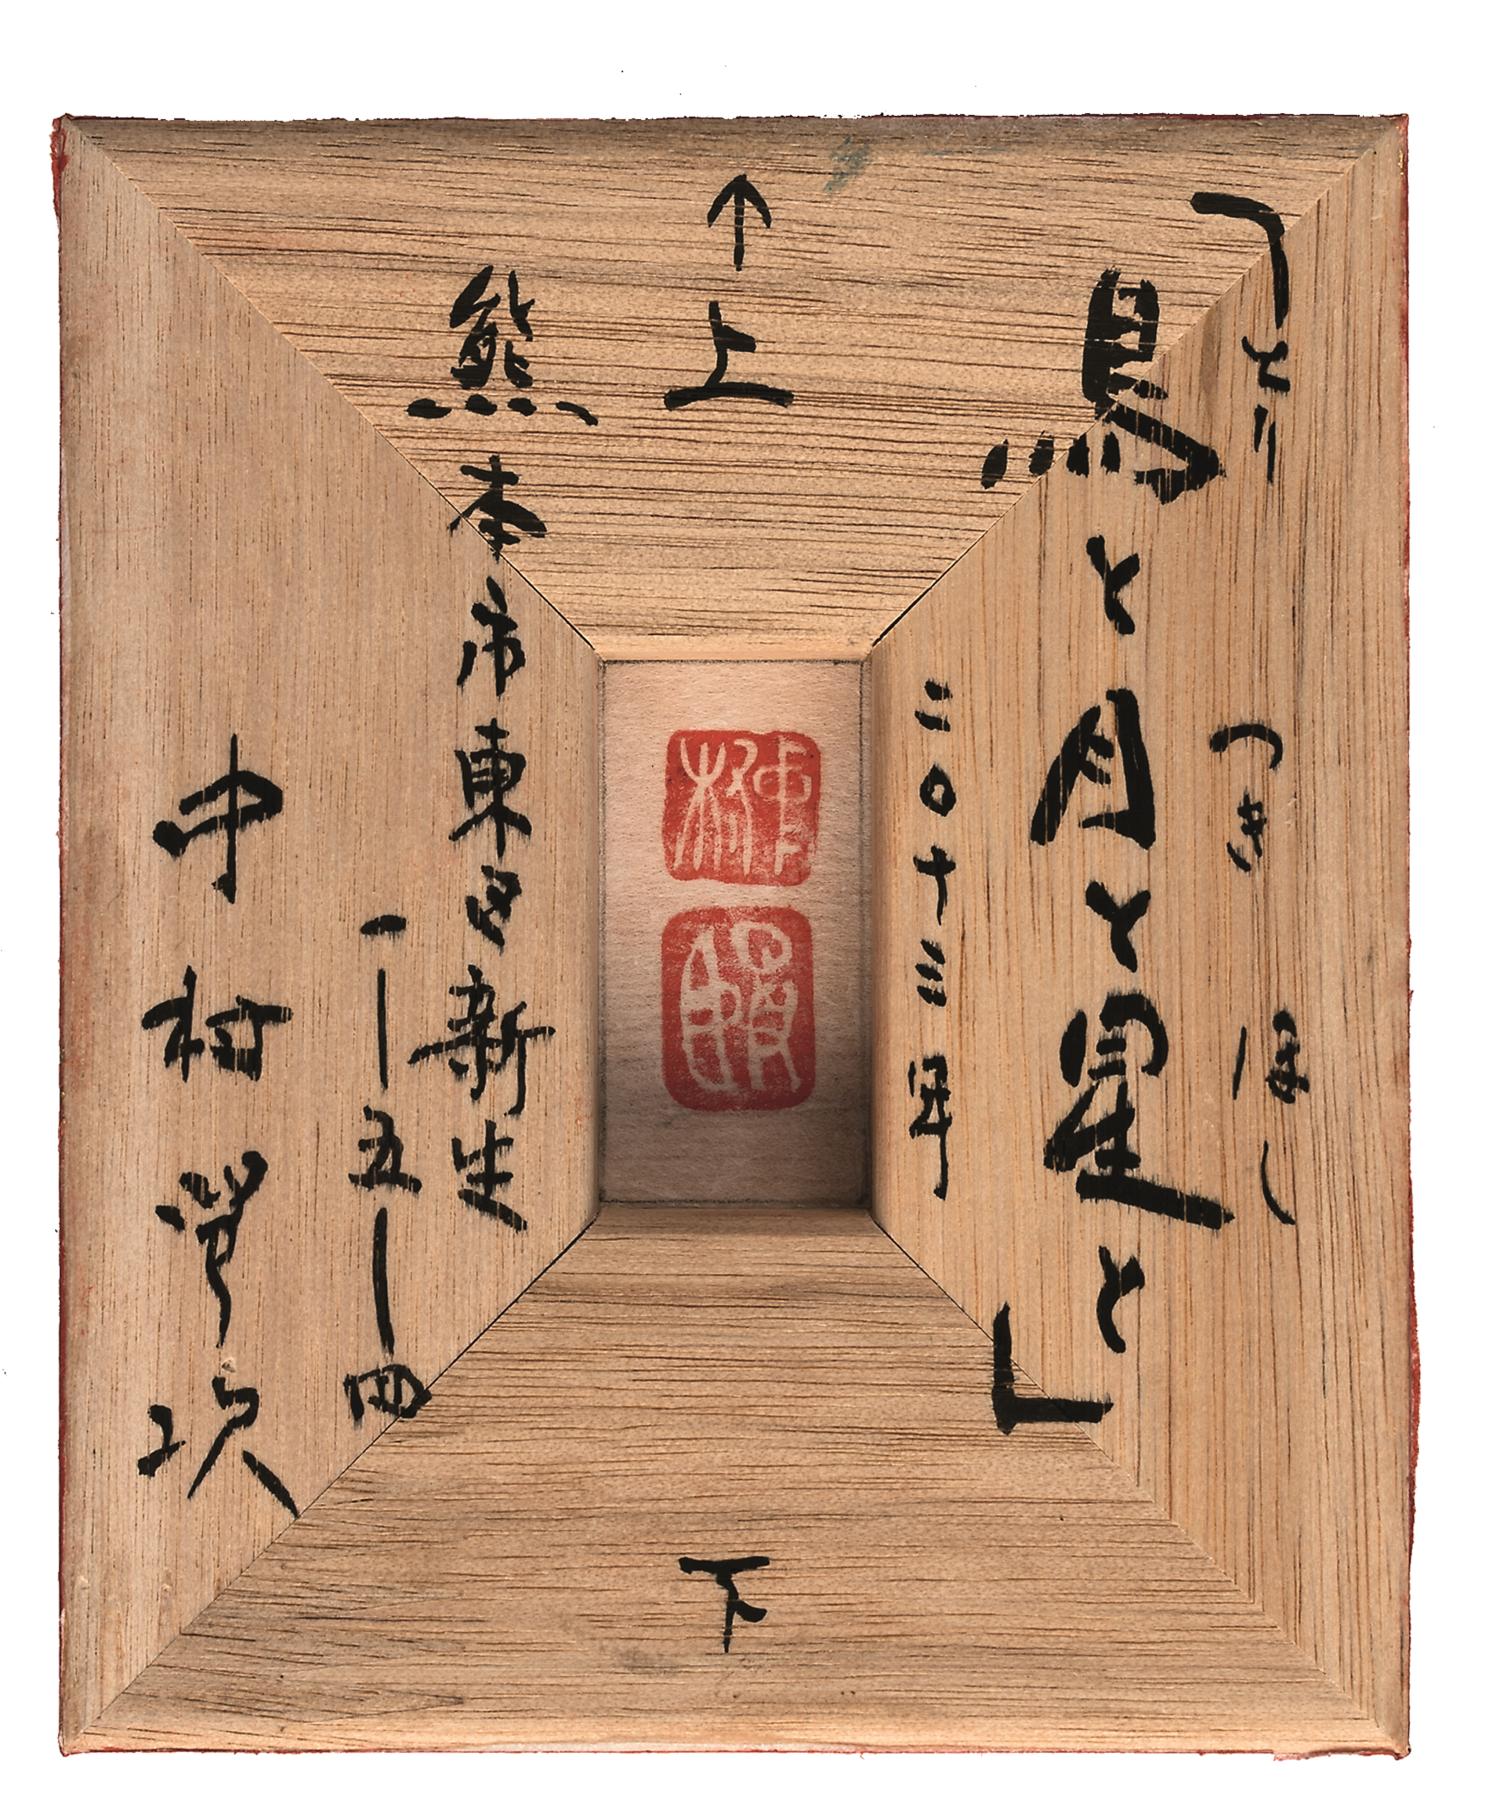 とり つき ほし
「鳥と月と星と」
二〇十三年
↑上
中村
下
熊本市東区新生
一ー五ー四
中村賢次